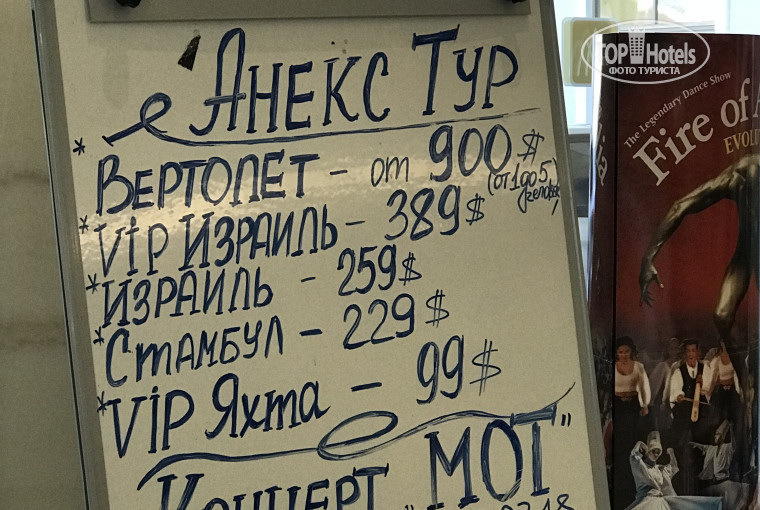 Анекс Тур
* Вертолет - от 900 $
(от 1 до 5
* VIP Израиль - 389 $
* Израиль - 259 $
* Стамбул - 229 $
* VIP Яхта - 99 $
Концерт "МОТ"
TOP Hotels
ФОТО ТУРИСТА
The Legendary Dance Show
Fire of